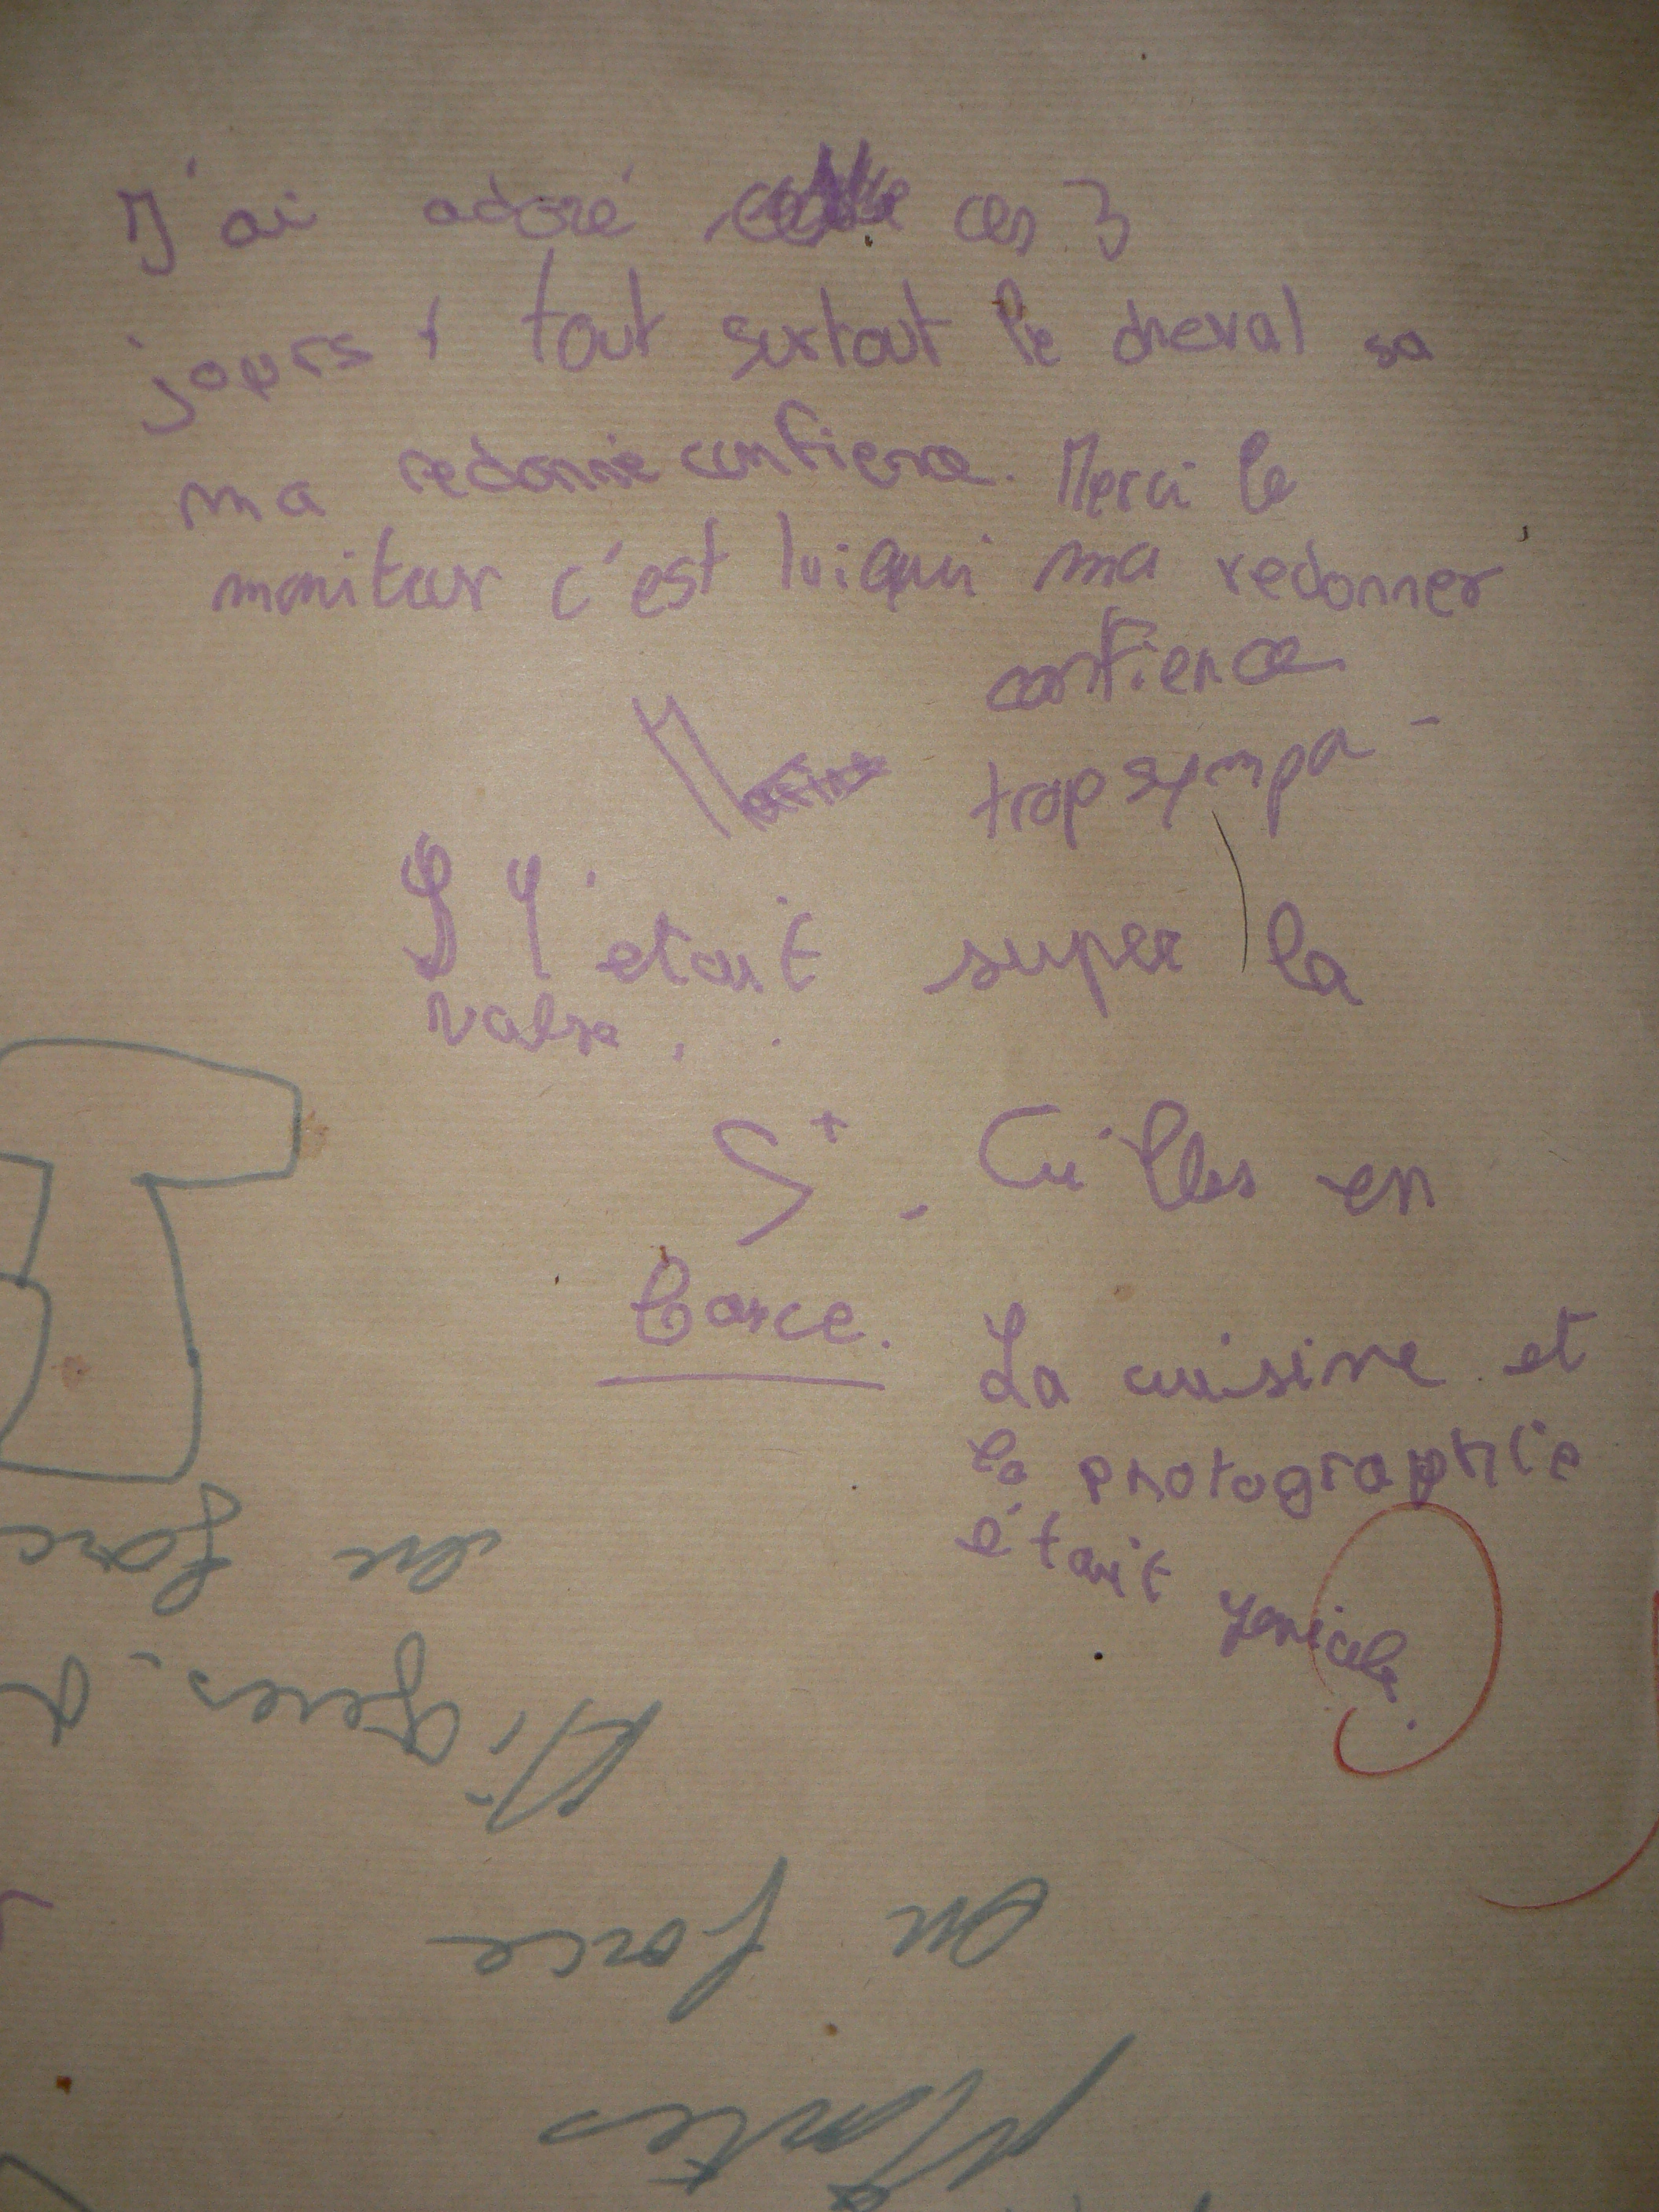 J'ai adoré ces 3
jours + tout surtout le cheval sa
ma redonné confience. Merci le
moniteur c'est lui qui ma redonner
confience
trop sympa
était super la
valse.
St - Cu
lles en
force.
La cuisine et
la photographie
était
en forc
Migères. A
en force
Mantes